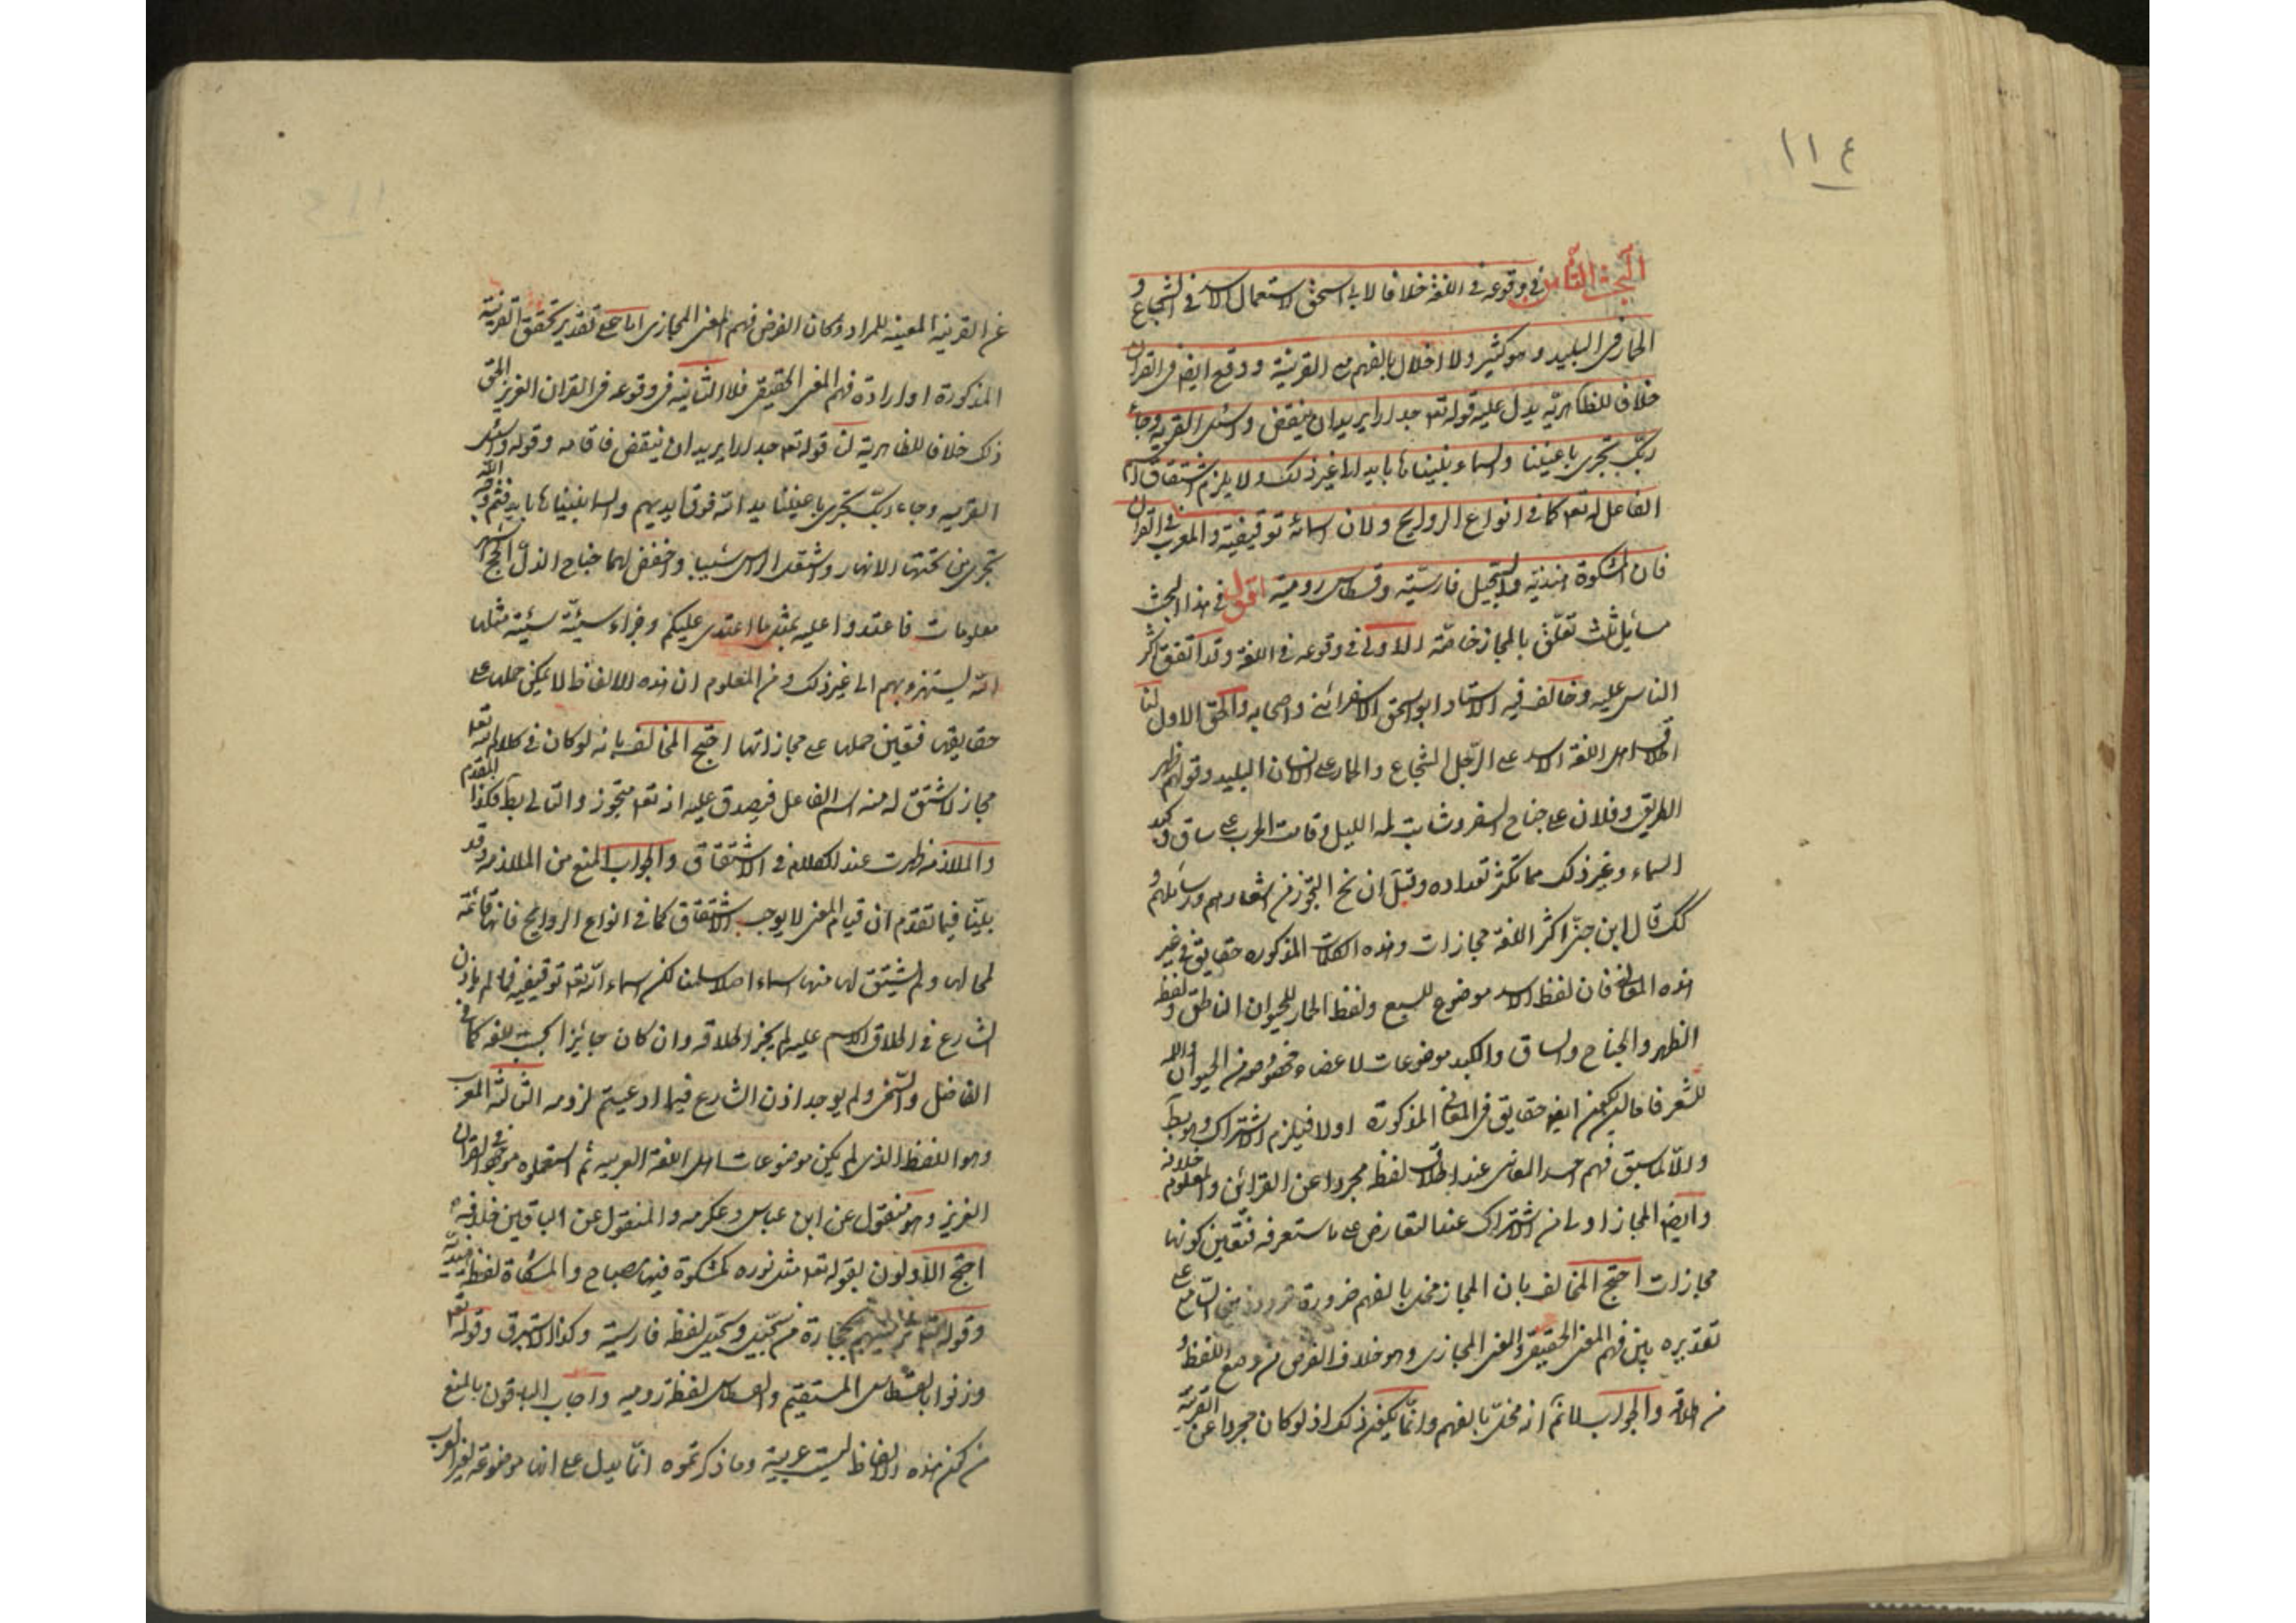 ١١٤
البحث الثامن في وقوعه في اللغة خلافا لابي اسحق لاستعمال الاسد في الشجاع و
الحمار في البليد وهو كثير ولا اخلال بالفهم مع القرينة ووقع ايضا في القران
خلافا للظاهرية يدل عليه قوله تعه جدارا يريد ان ينقض واسئل القرية وجاء
ربك تجرى باعيننا والسماء بنيناها بايد الى غير ذلك ولا يلزم اشتقاق اسم
الفاعل له تعه كما في انواع الروايح ولان اسمائه توقيفية والمعرب في القران
فان المشكوة هندية والسجيل فارسية وقسطاس رومية اقول في هذا البحث
مسائل ثلث تتعلق بالمجاز خاصة الاولى في وقوعه في اللغة وقد اتفق اكثر
الناس عليه وخالف فيه الاستاد ابواسحق الاسفرائني واصحابه والحق الاول لنا
اطلاق اهل اللغة الاسد على الرجل الشجاع والحمار على الانسان البليد وقولهم ظهر
الطريق وفلان على جناح السفر وشابت لمة الليل وقامت الحرب على ساق وكبد
السماء وغير ذلك مما تكثر تعداده وقيل ان نح التجوز في اشعارهم ورسائلهم و
لذلك قال ابن جنى اكثر اللغة مجازات وهذه الكلمات المذكورة حقايق في غير
هذه المعانى فان لفظ الاسد موضوع للسبع ولفظ الحمار للحيوان الناهق ولفظ
الظهر والجناح والساق والكبد موضوعات لاعضاء مخصوصة من الحيوان واللمة
للشعر فاما ان يكون ايضا حقايق في المعانى المذكورة اولا فيلزم الاشتراك وهو بط
والا لما سبق فهم احد المعانى عند اطلاق لفظه مجردا عن القرائن والمعلوم خلافه
وايضا المجاز اولى من الاشتراك عند التعارض على ما ستعرفه فتعين كونها
مجازات احتج المخالف بان المجاز مخل بالفهم ضرورة تردد ذهن السامع على
تقديره بين فهم المعنى الحقيقى والمعنى المجازى وهو خلاف الغرض من وضع اللفظ و
من اطلاقه والجواب لا نم انه مخل بالفهم وانما يكون كذلك ان لو كان مجردا عن القرينة
عن القرينة المعينة للمراد وكان الغرض فهم المعنى المجازى اما على تقدير تحقق القرينة
المذكورة او ارادة فهم المعنى الحقيقى فلا الثانية في وقوعه في القران العزيز الحق
ذلك خلافا للظاهرية لنا قوله تعه جدارا يريد ان ينقض فاقامه وقوله واسئل
القرية وجاء ربك تجرى باعيننا يد الله فوق ايديهم والسماء بنيناها بايد فثم وجه الله
تجرى من تحتها الانهار واشتعل الراس شيبا واخفض لهما جناح الذل الحج اشهر
معلومات فاعتدوا عليه بمثل ما اعتدى عليكم وجزاء سيئة سيئة مثلها
الله يستهزء بهم الى غير ذلك ومن المعلوم ان هذه الالفاظ لا يمكن حملها على
حقايقها فتعين حملها على مجازاتها احتج المخالف بانه لو كان في كلام الله تعه
مجاز لاشتق له منه اسم الفاعل فيصدق عليه انه تعه متجوز والتالى بط فكذا المقدم
والملازمة ظهرت عند الكلام في الاشتقاق والجواب المنع من الملازمة وقد
بينا فيما تقدم ان قيام المعنى لا يوجب الاشتقاق كما في انواع الروايح فانها قائمة
لمحالها ولم يشتق لها منها اسماء اصلا سلمنا لكن اسماء الله تعه توقيفية فما لم ياذن
الشارع في اطلاق الاسم عليه لم يجز اطلاقه وان كان جايزا بحسب اللغة كما في
الفاضل والسخى ولم يوجد اذن الشارع فيما ادعيتم لزومه الثالثة المعرب
وهو اللفظ الذى لم يكن من موضوعات اهل اللغة العربية ثم استعملوه موجود في القران
العزيز وهو منقول عن ابن عباس وعكرمة والمنقول عن الباقين خلافه
احتج الاولون بقوله تعه مثل نوره كمشكوة فيها مصباح والمشكاة لفظة هندية
وقوله تعه ترميهم بحجارة من سجيل وسجيل لفظة فارسية وكذا الاستبرق وقوله تعه
وزنوا بالقسطاس المستقيم والقسطاس لفظة رومية واجاب الباقون بالمنع
من كون هذه الالفاظ ليست عربية وما ذكرتموه انما يدل على انها موضوعة لغير العرب